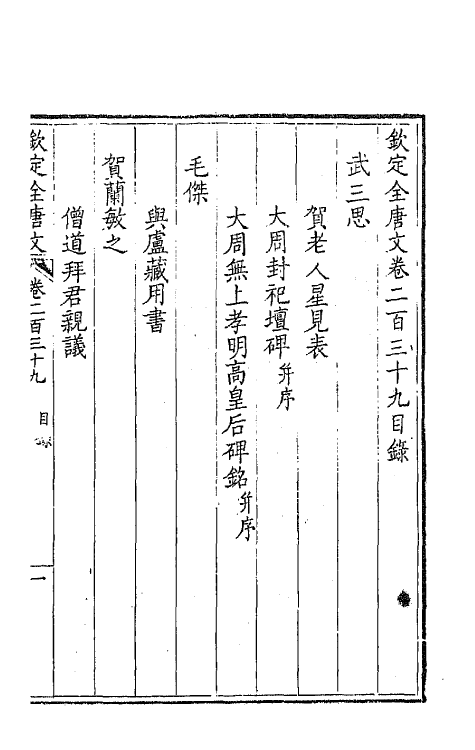 欽定全唐文卷二百三十九目錄
武三思
賀老人星見表
大周封祀壇碑并序
大周無上孝明高皇后碑銘并序
毛傑
與盧藏用書
賀蘭敏之
僧道拜君親議
欽定全唐文 卷二百三十九 目錄 一